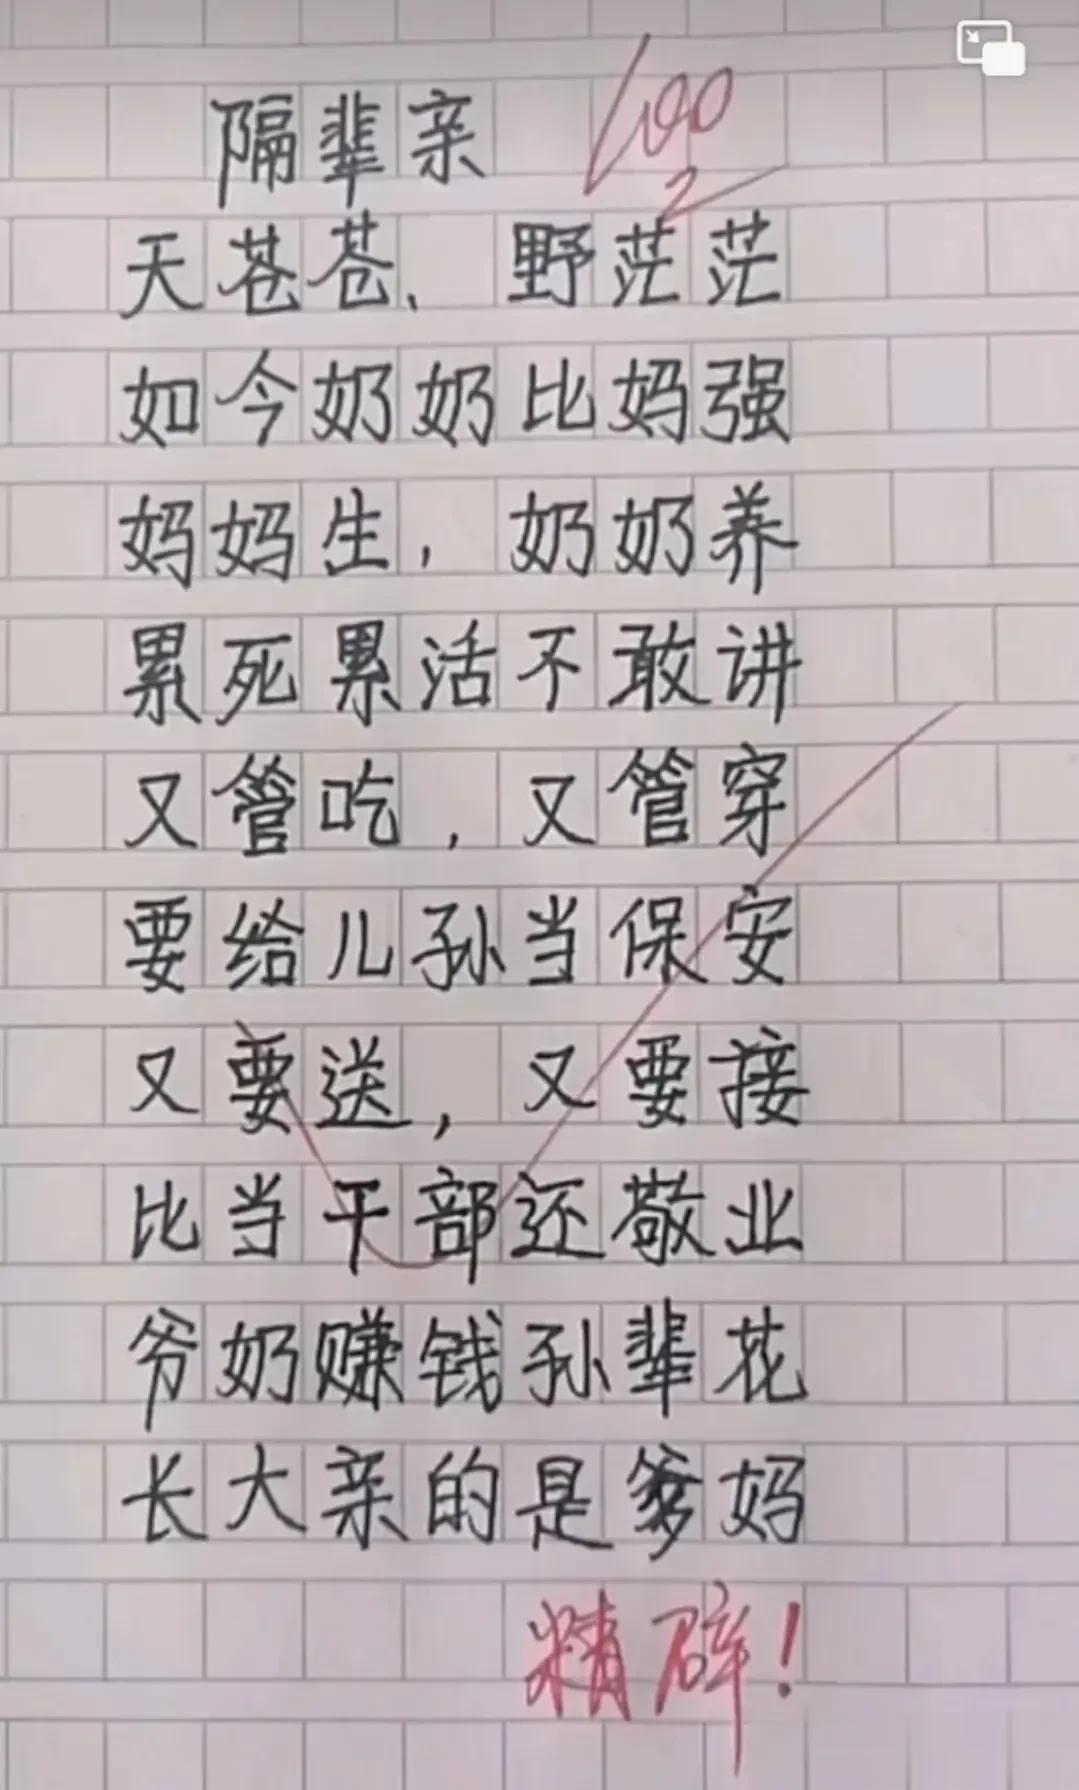 隔辈亲 100
2
天苍苍、野茫茫
如今奶奶比妈强
妈妈生，奶奶养
累死累活不敢讲
又管吃，又管穿
要给儿孙当保安
又要送，又要接
比当干部还敬业
爷奶赚钱孙辈花
长大亲的是爹妈
精辟！